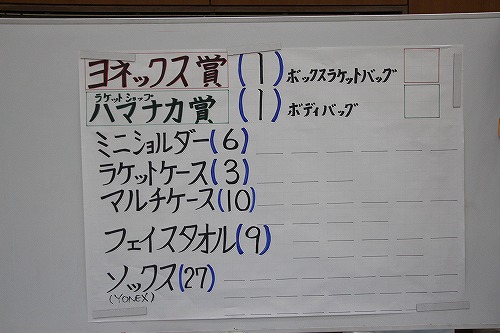 ヨネックス賞(1)ボックスラケットバッグ
ラケットショップ
ハマナカ賞(1)ボディバッグ
ミニショルダー(6)
ラケットケース(3)
マルチケース(10)
フェイスタオル(9)
ソックス(27)
(YONEX)